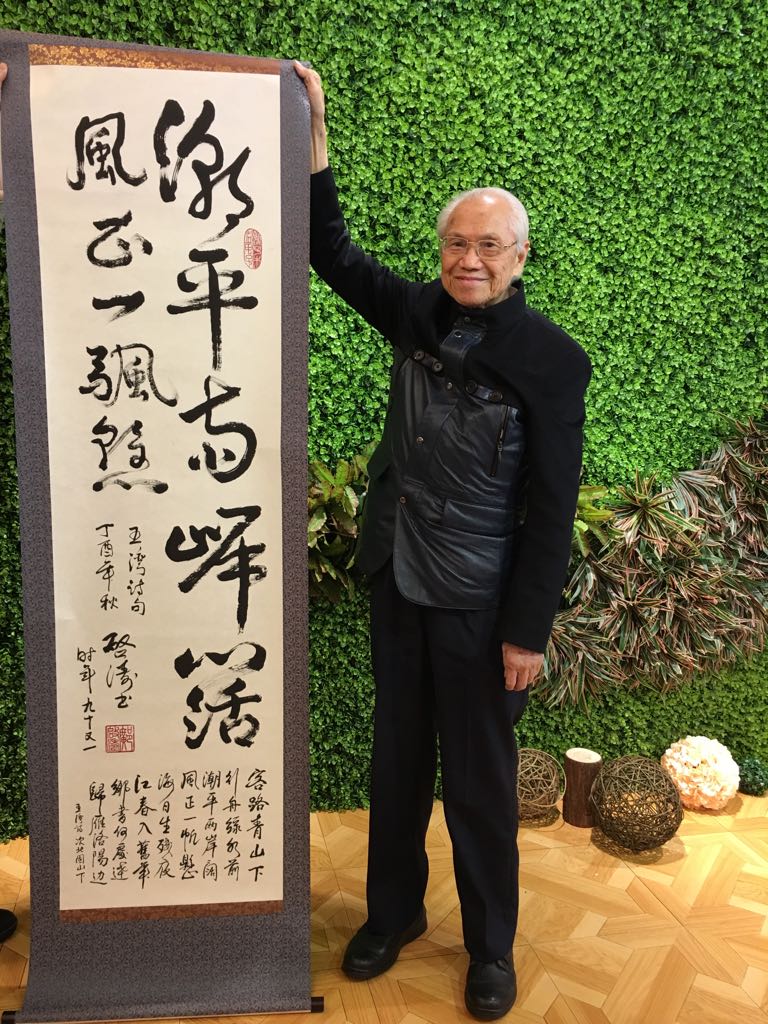 潮平両岸闊
風正一颿懸
王湾诗句
丁酉年秋
啓濤书
时年九十又一
客路青山下
行舟绿水前
潮平両岸闊
風正一帆懸
海日生残夜
江春入舊年
鄉書何處達
歸雁洛陽边
王湾诗 次北固山下